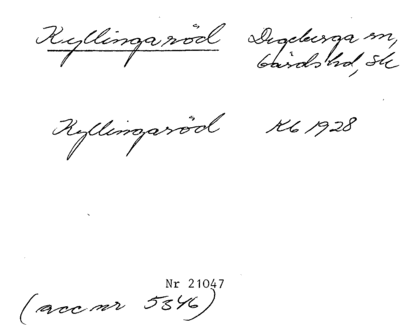 Kyllingaröd Degeberga sn,
Gärds hd, Sk
Kyllingaröd Kb 1928
Nr 21047
(acc nr 5346)